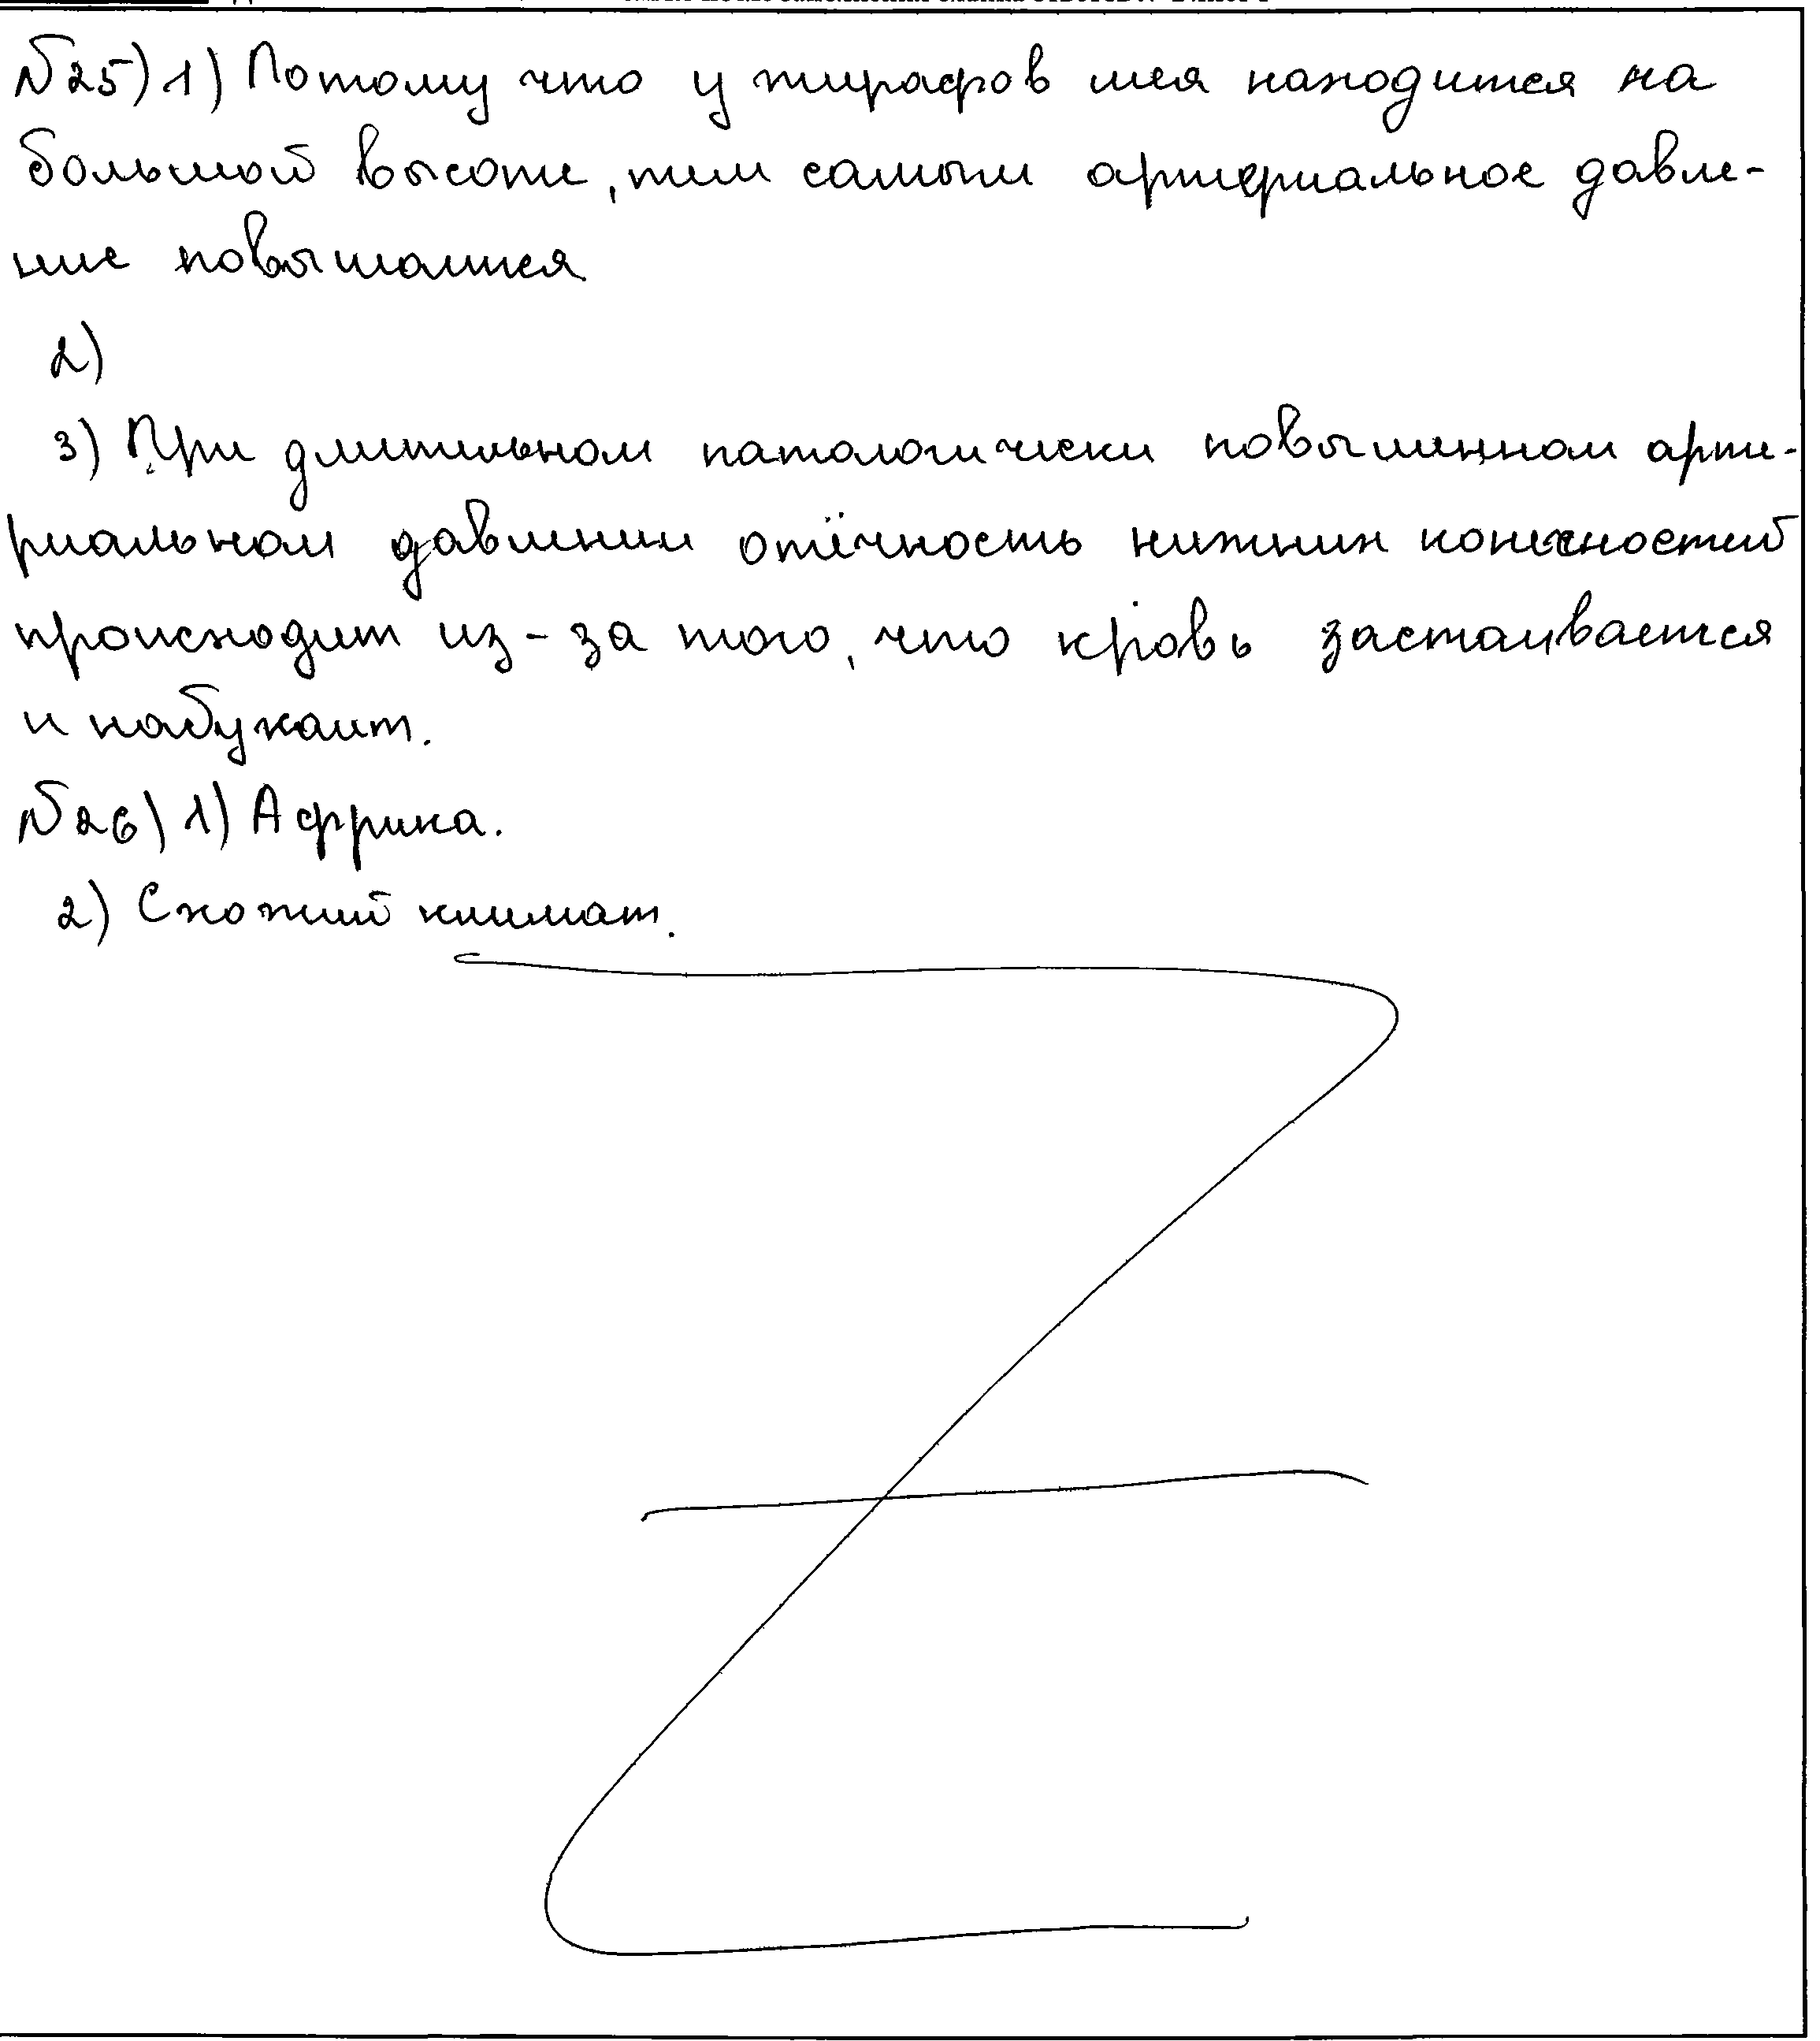 №25) 1) Потому что у жирафов шея находится на
большой высоте, тем самым артериальное давле-
ние повышается
2)
3) При длительном патологически повышенном арте-
риальном давлении отёчность нижних конечностей
происходит из-за того, что кровь застаивается
и набухает.
№26) 1) Африка.
2) Схожий климат.